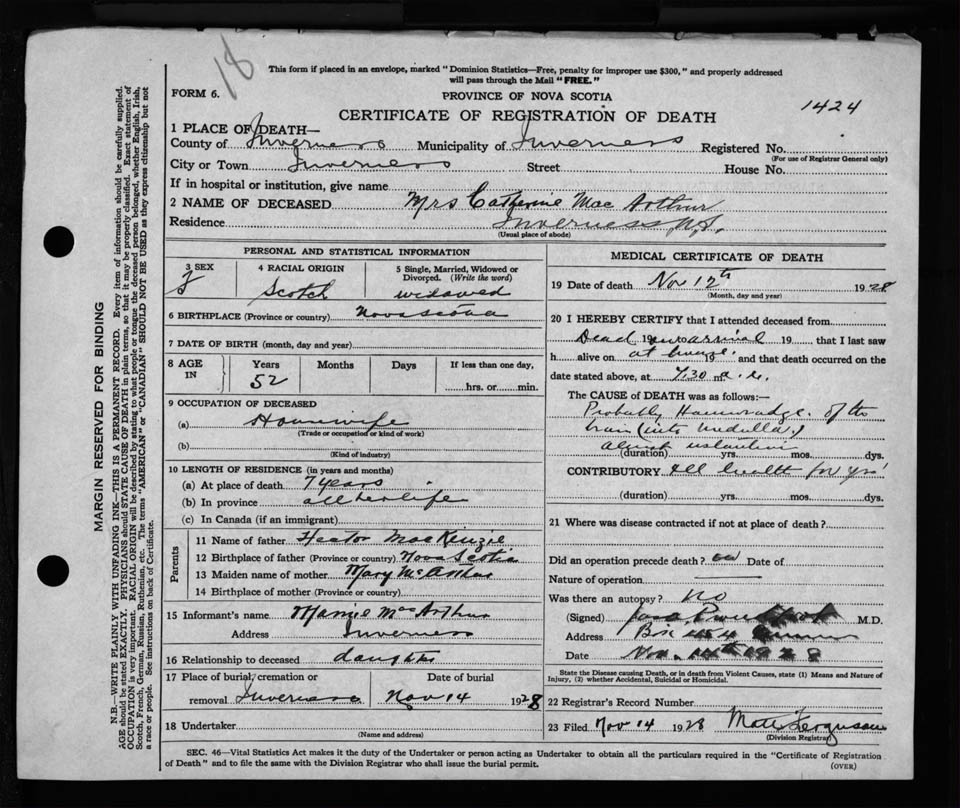 18
This form if placed in an envelope, marked "Dominion Statistics—Free, penalty for improper use $300," and properly addressed
will pass through the Mail "FREE."
FORM 6.
PROVINCE OF NOVA SCOTIA
1424
CERTIFICATE OF REGISTRATION OF DEATH
1 PLACE OF DEATH—
County of Inverness Municipality of Inverness Registered No.
(For use of Registrar General only)
City or Town Inverness Street House No.
If in hospital or institution, give name
2 NAME OF DECEASED Mrs Catherine Mac Arthur
Residence Inverness N.S.
(Usual place of abode)
PERSONAL AND STATISTICAL INFORMATION
3 SEX 4 RACIAL ORIGIN 5 Single, Married, Widowed or
Divorced. (Write the word)
F Scotch widowed
6 BIRTHPLACE (Province or country) Nova Scotia
7 DATE OF BIRTH (month, day and year)
8 AGE IN Years Months Days If less than one day,
52 hrs. or min.
9 OCCUPATION OF DECEASED
(a) Housewife
(Trade or occupation or kind of work)
(b)
(Kind of industry)
10 LENGTH OF RESIDENCE (in years and months)
(a) At place of death 7 years
(b) In province all her life
(c) In Canada (if an immigrant)
Parents
11 Name of father Hector MacKenzie
12 Birthplace of father (Province or country) Nova Scotia
13 Maiden name of mother Mary
14 Birthplace of mother (Province or country)
15 Informant's name Mac Arthur
Address Inverness
16 Relationship to deceased daughter
17 Place of burial, cremation or Date of burial
removal Inverness Nov 14 1928
18 Undertaker
(Name and address)
MEDICAL CERTIFICATE OF DEATH
19 Date of death Nov 12th 1928
(Month, day and year)
20 I HEREBY CERTIFY that I attended deceased from
Dead 19 on arrival 19 that I last saw
h alive on at 19 and that death occurred on
date stated above, at 7.30 m
The CAUSE of DEATH was as follows:—
Probably Haemorrhage of the
brain (into medulla)
almost
(duration) yrs. mos. dys.
CONTRIBUTORY Ill health for yrs
(duration) yrs. mos. dys.
21 Where was disease contracted if not at place of death?
Did an operation precede death? no Date of
Nature of operation
Was there an autopsy? no
(Signed) M.D.
Address Box 454
Date Nov. 14th 1928
State the Disease causing Death, or in death from Violent Causes, state (1) Means and Nature of
Injury, (2) whether Accidental, Suicidal or Homicidal.
22 Registrar's Record Number
23 Filed Nov 14 1928 Ferguson
(Division Registrar)
SEC. 46—Vital Statistics Act makes it the duty of the Undertaker or person acting as Undertaker to obtain all the particulars required in the "Certificate of Registration
of Death" and to file the same with the Division Registrar who shall issue the burial permit.
(OVER)
MARGIN RESERVED FOR BINDING
N.B.—WRITE PLAINLY WITH UNFADING INK—THIS IS A PERMANENT RECORD. Every item of information should be carefully supplied.
AGE should be stated EXACTLY. PHYSICIANS should STATE CAUSE OF DEATH in plain terms, so that it may be properly classified. Exact statement of
OCCUPATION is very important. RACIAL ORIGIN will be described by stating to what people or tongue the deceased person belonged, whether English, Irish,
Scotch, French, German, Russian, Ruthenian, etc. The terms "AMERICAN" or "CANADIAN" SHOULD NOT BE USED as they express citizenship but not
a race or people. See instructions on back of Certificate.